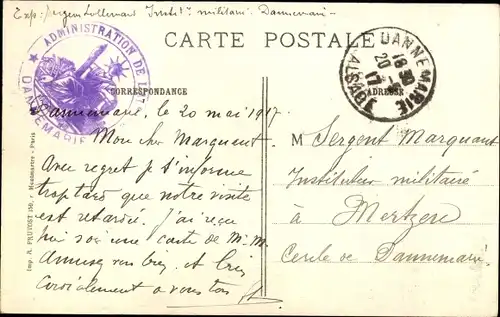 Exp: Sergent Lollemand Instit. militaire Dannemarie
ADMINISTRATION DE
DANNEMARIE
CARTE POSTALE
DANNEMARIE
18 30
20 -5
17
ALSACE
CORRESPONDANCE
ADRESSE
Dannemarie, le 20 mai 1917
Mon cher Marquant
Avec regret je t'informe
trop tard que notre visite
est retardée. J'ai reçu
hier soir une carte de M. M.
Amusez vous bien, et bien
cordialement a vous tous
M Sergent Marquant
Instituteur militaire
à Mertzen
Cercle de Dannemarie
Imp. A. PRUVOST 159, r. Montmartre - Paris